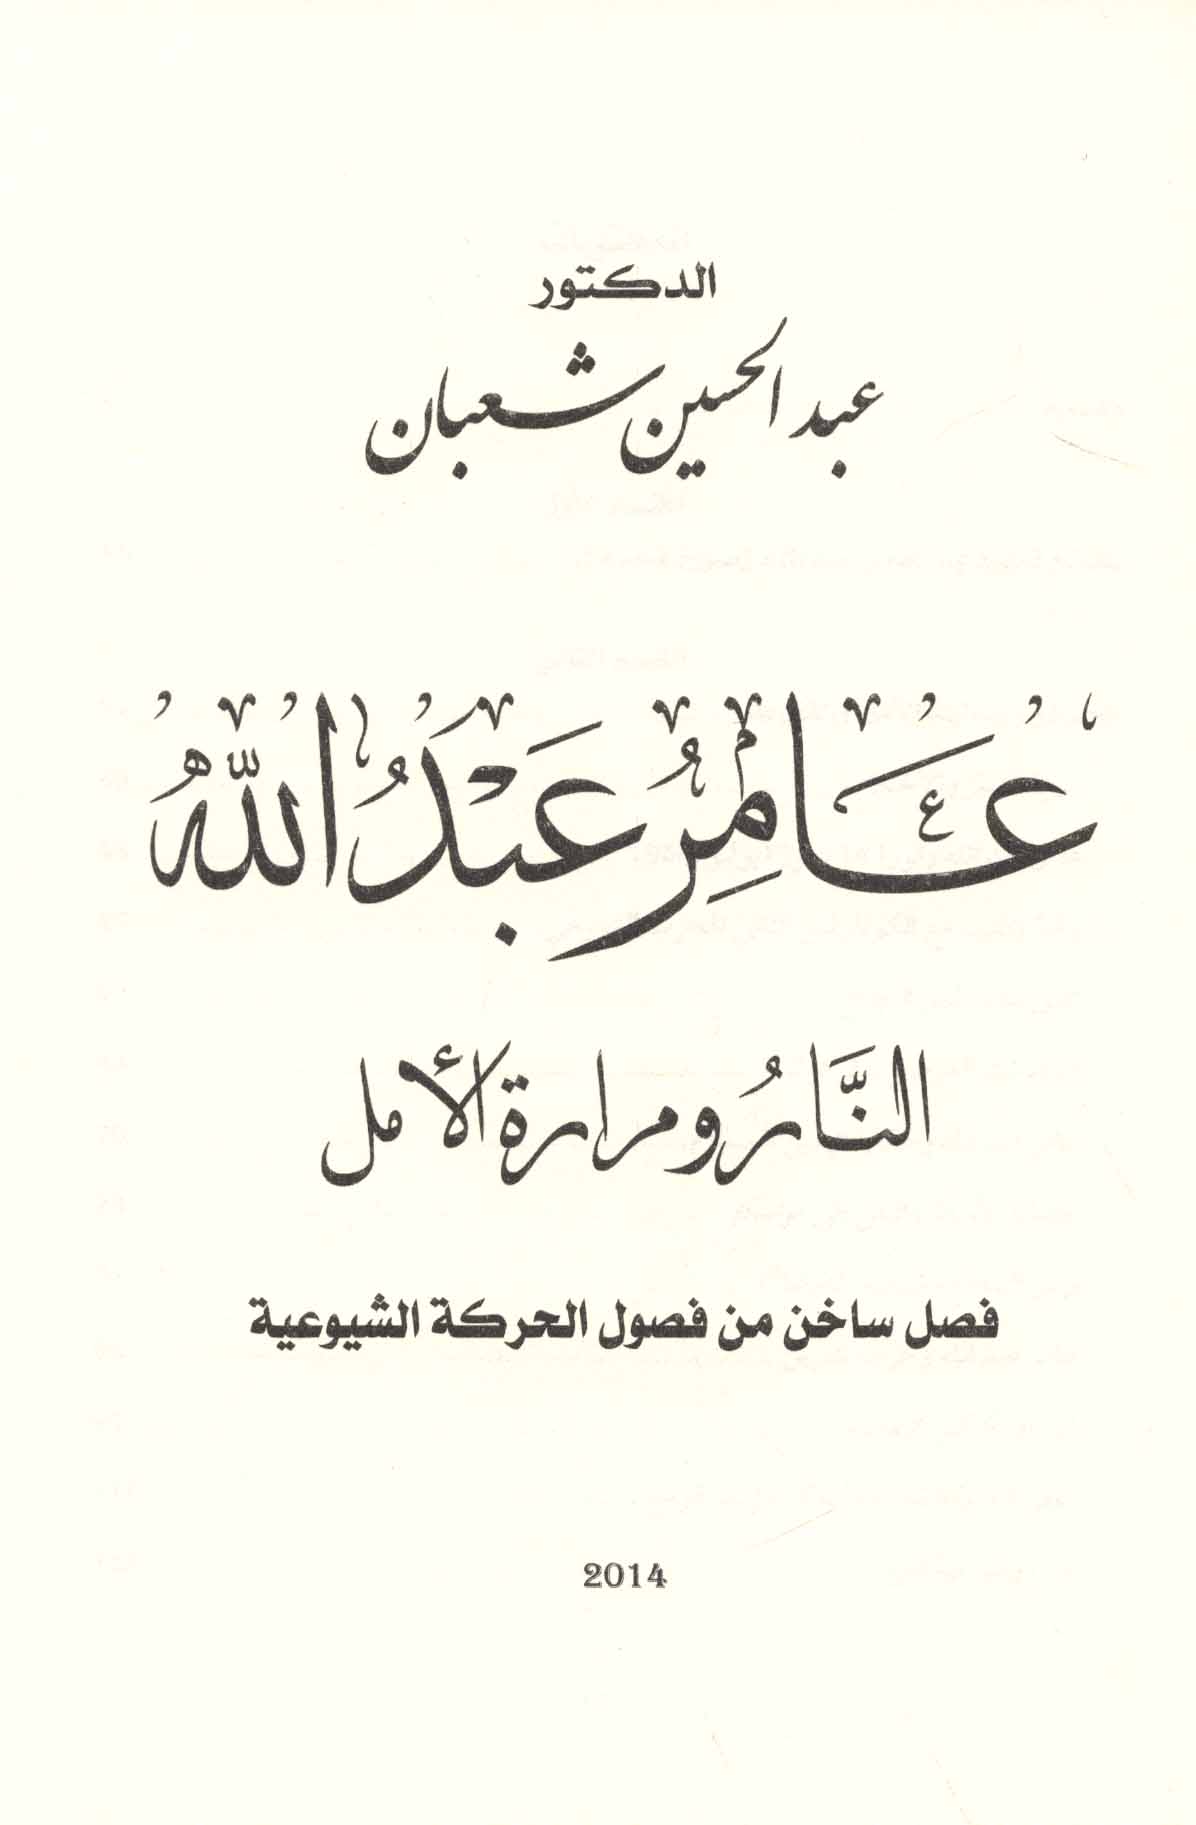 الدكتور
عبد الحسين شعبان
عَامِرُ عَبْدُ اللّٰهُ
النَّارُ ومرارة الأمل
فصل ساخن من فصول الحركة الشيوعية
2014